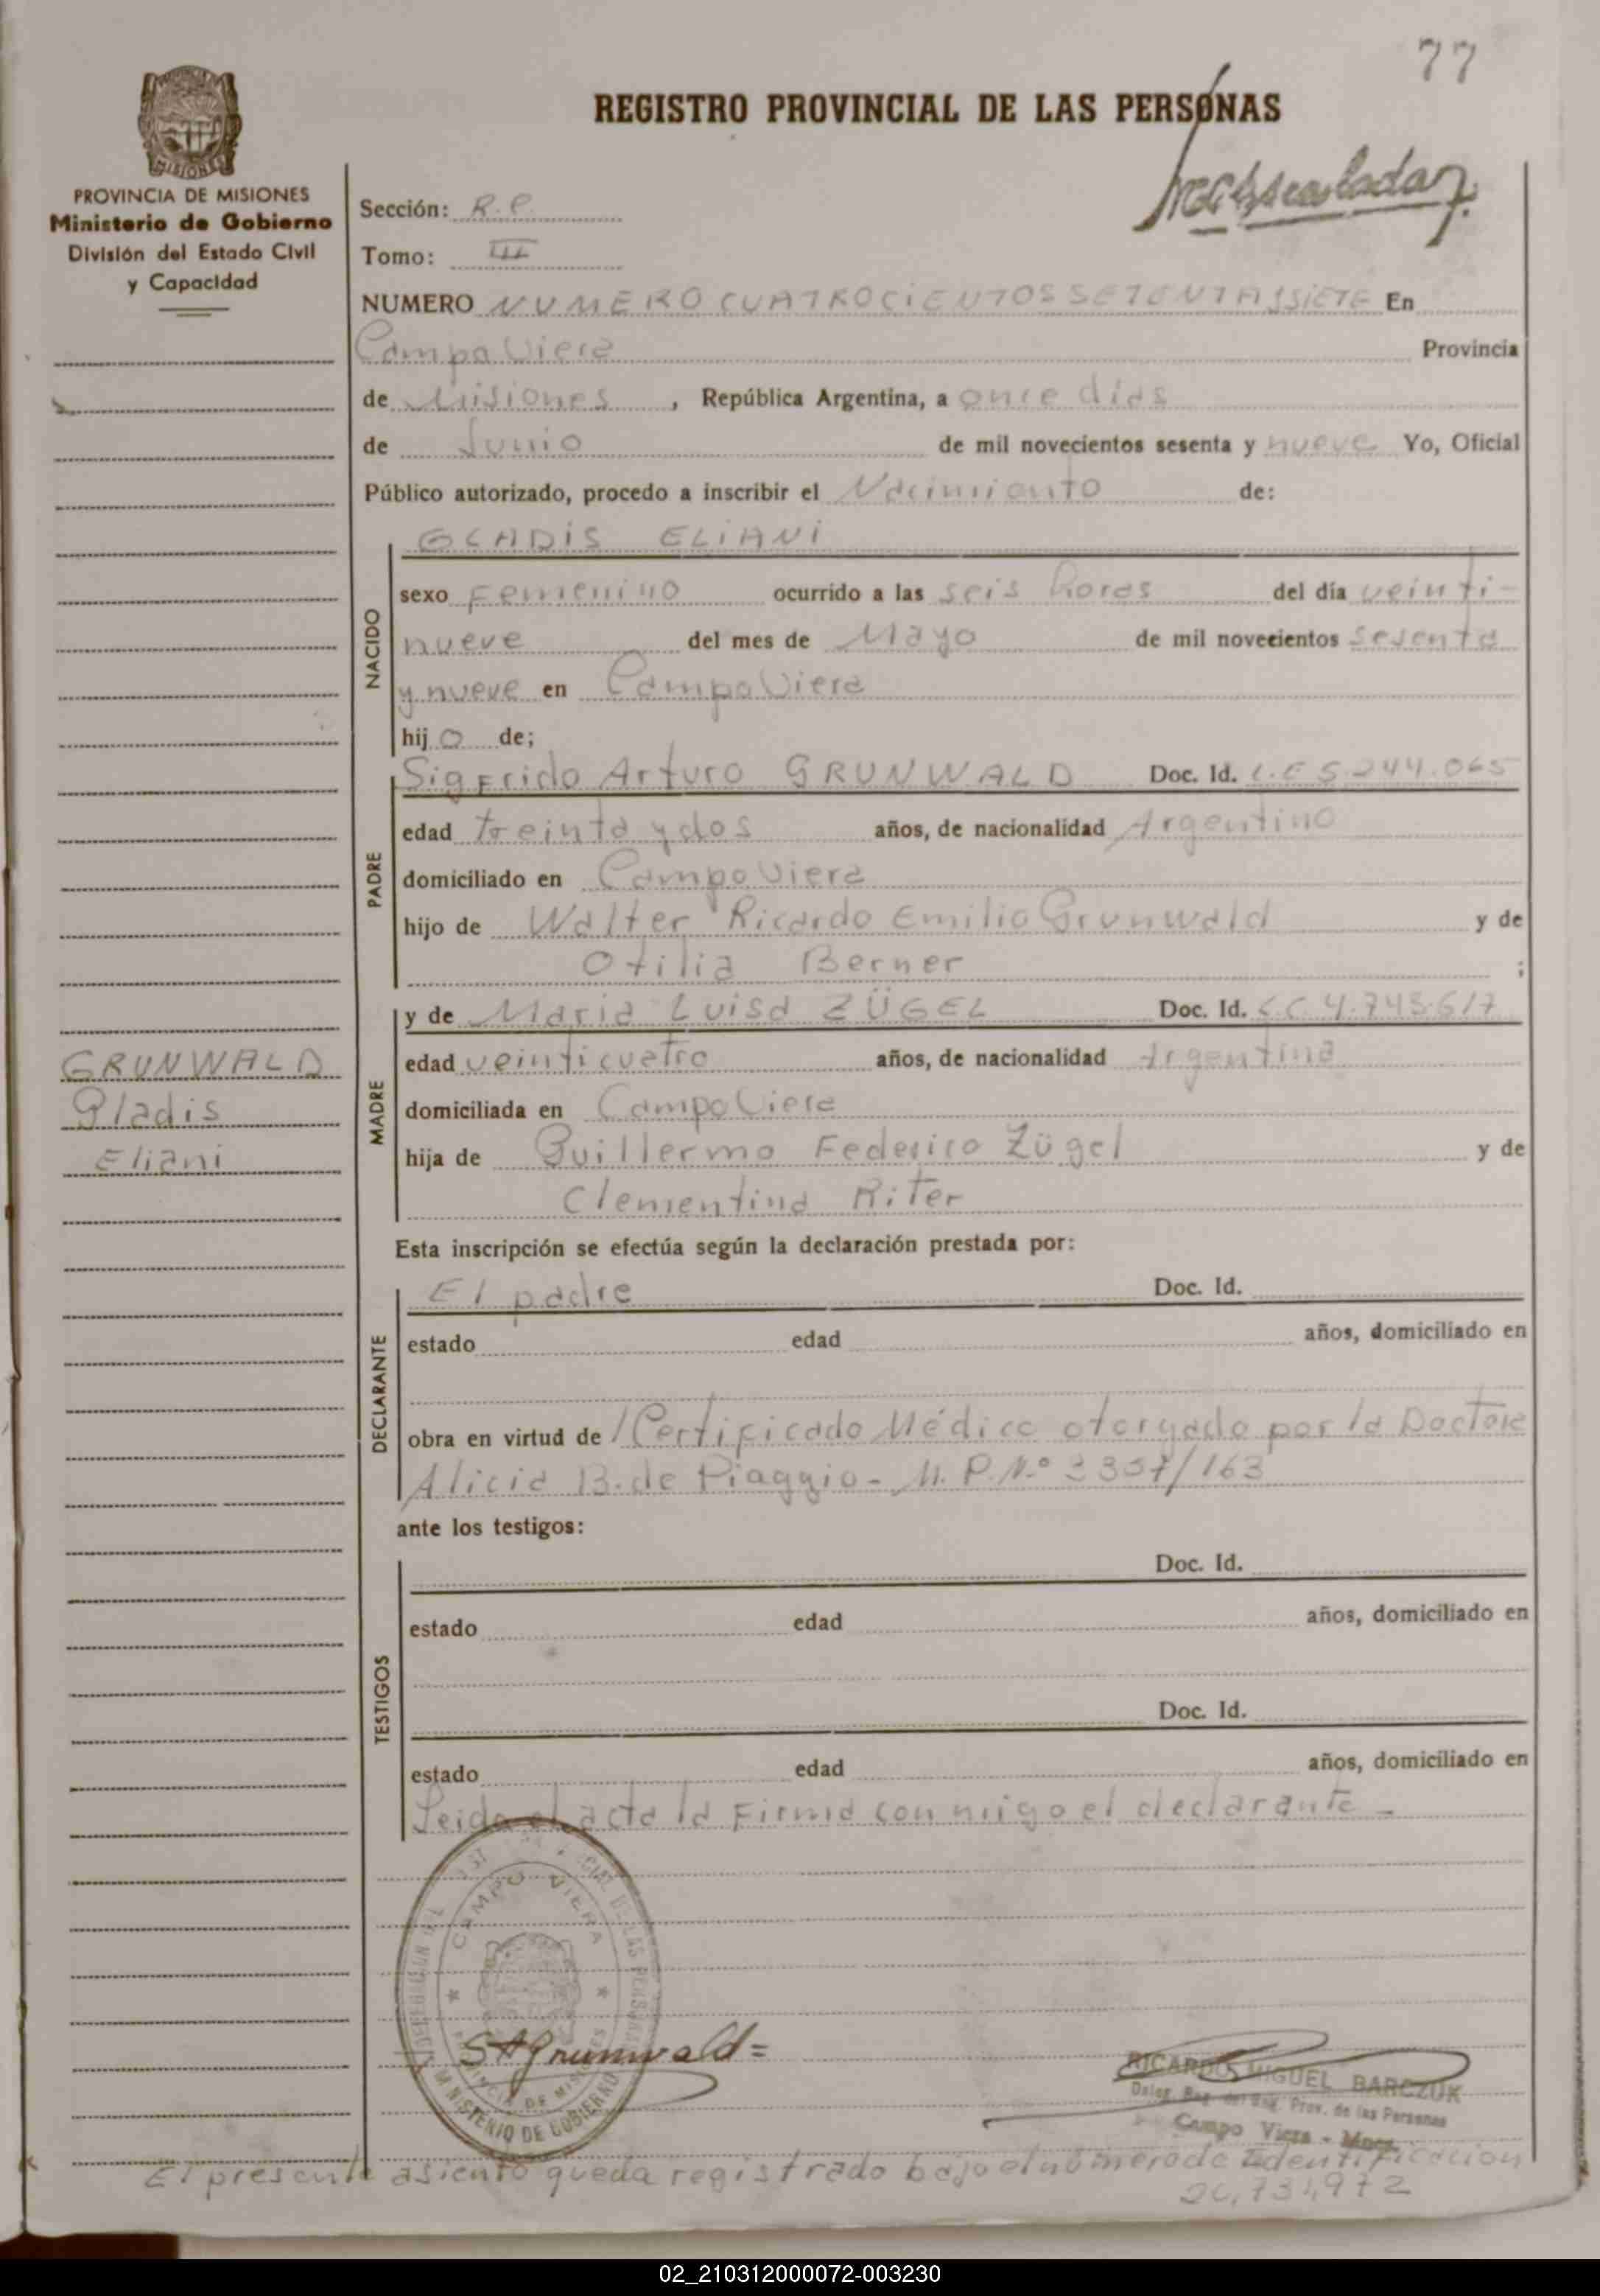 77
REGISTRO PROVINCIAL DE LAS PERSONAS
MISIONES
PROVINCIA DE MISIONES
Ministerio de Gobierno
División del Estado Civil
y Capacidad
Sección: R.C.
Tomo: III
NUMERO NUMERO CUATROCIENTOS SETENTAISIETE En
Campo Viera Provincia
de Misiones, República Argentina, a once dias
de Junio de mil novecientos sesenta y nueve Yo, Oficial
Público autorizado, procedo a inscribir el Nacimiento de:
GLADIS ELIANI
NACIDO
sexo Femenino ocurrido a las seis horas del día veinti-
nueve del mes de Mayo de mil novecientos sesenta
y nueve en Campo Viera
hij o de;
Sigfrido Arturo GRUNWALD Doc. Id. L.E 5.244.065
PADRE
edad treinta y dos años, de nacionalidad Argentino
domiciliado en Campo Viera
hijo de Walter Ricardo Emilio Grunwald y de
Otilia Berner ;
y de Maria Luisa ZÜGEL Doc. Id. L.C. 4.743.617
MADRE
edad veinticuatro años, de nacionalidad Argentina
domiciliada en Campo Viera
hija de Guillermo Federico Zügel y de
Clementina Riter
GRUNWALD
Gladis
Eliani
Esta inscripción se efectúa según la declaración prestada por:
El padre Doc. Id.
DECLARANTE
estado edad años, domiciliado en
obra en virtud de Certificado Médico otorgado por la Doctora
Alicia B. de Piaggio- M.P.N.º 3357/163
ante los testigos:
Doc. Id.
TESTIGOS
estado edad años, domiciliado en
Doc. Id.
estado edad años, domiciliado en
Leida el acta la Firma con migo el declarante -
CAMPO VIERA
PROVINCIA DE MISIONES
MINISTERIO DE GOBIERNO
SAGrunwald=
RICARDO MIGUEL BARCZUK
Prov. de las Personas
Campo Viera - Mnes.
El presente asiento queda registrado bajo el número de Identificacion
20,731,972
02_210312000072-003230